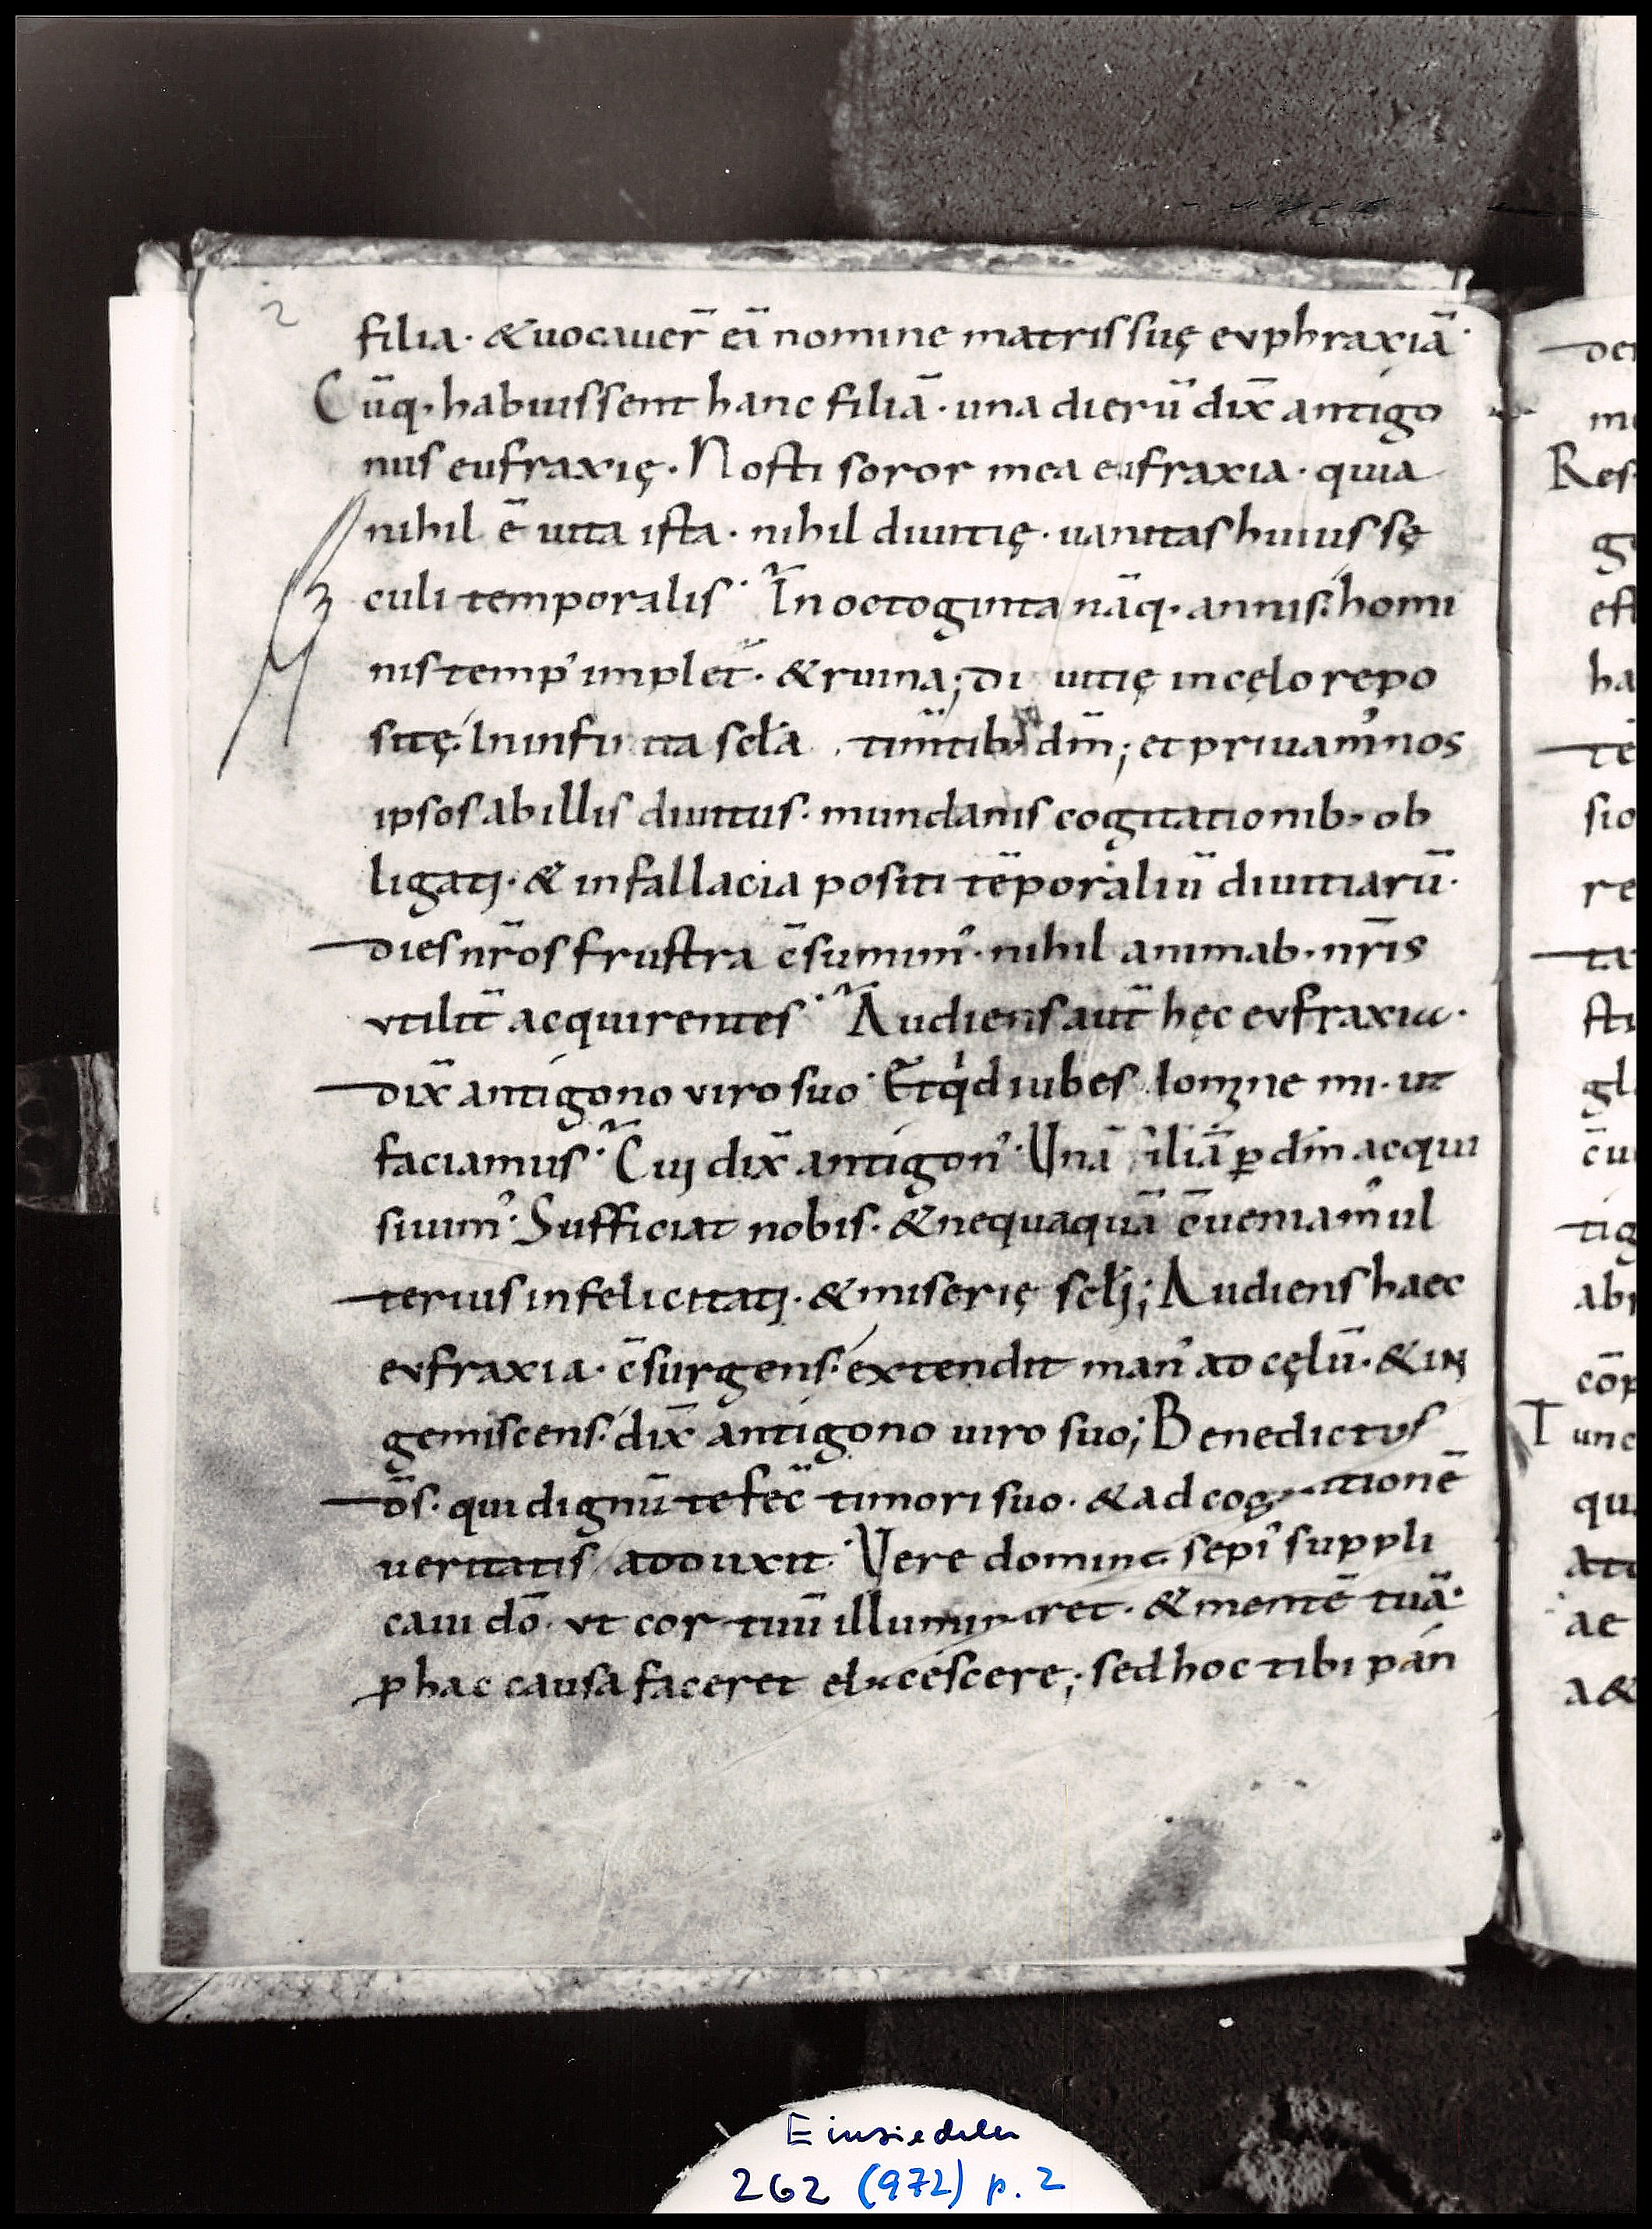 2
filia· & uocauer̄ eā nomine matris suę euphraxiā·
Cūq· habuissent hanc filiā· una dierū dix̄ antigo
nus eufraxię· Nosti soror mea eufraxia· quia
nihil ē uita ista· nihil diuitię· uanitas huius sę
culi temporalis· In octoginta nāq· annis· homi
nis temp' implet̄· & ruina; di uitię in cęlo repo
sitę· In infi nita sclā timtib; dm̄; et priuam'nos
ipsos ab illis diuitiis· mundanis cogitationib; ob
ligati· & in fallacia positi tēporaliū diuitiarū·
dies nr̄os frustra c̄sumim'· nihil animab· nr̄is
utilit̄ acquirentes· Audiens aut̄ hęc eufraxia·
dix̄ antigono viro suo· Et qid iubes domne mi· ut
faciamus· Cui dix̄ antigon'· Unā filiā ꝑ dm̄ acqui
siuim'· Sufficiat nobis· & nequaquā c̄ueniam' ul
terius infelicitati· & miserię scłi; Audiens haec
eufraxia· c̄surgens· extendit man' ad cęlū· & in
gemiscens· dix̄ antigono uiro suo; Benedictus
d̄s· qui dignū te fec̄ timori suo· & ad cogitationē
ueritatis adduxit· Vere domine sepi' suppli
caui dō· ut cor tuū illuminaret· & mentē tuā·
ꝑ hac causa faceret elucescere; sed hoc tibi pan
de
Res
g
est
ha
te
sio
re
ta
sti
gl
c̄u
tig
abi
cōp
Tunc
qu
ae
a&
Einsiedeln
262 (972) p. 2